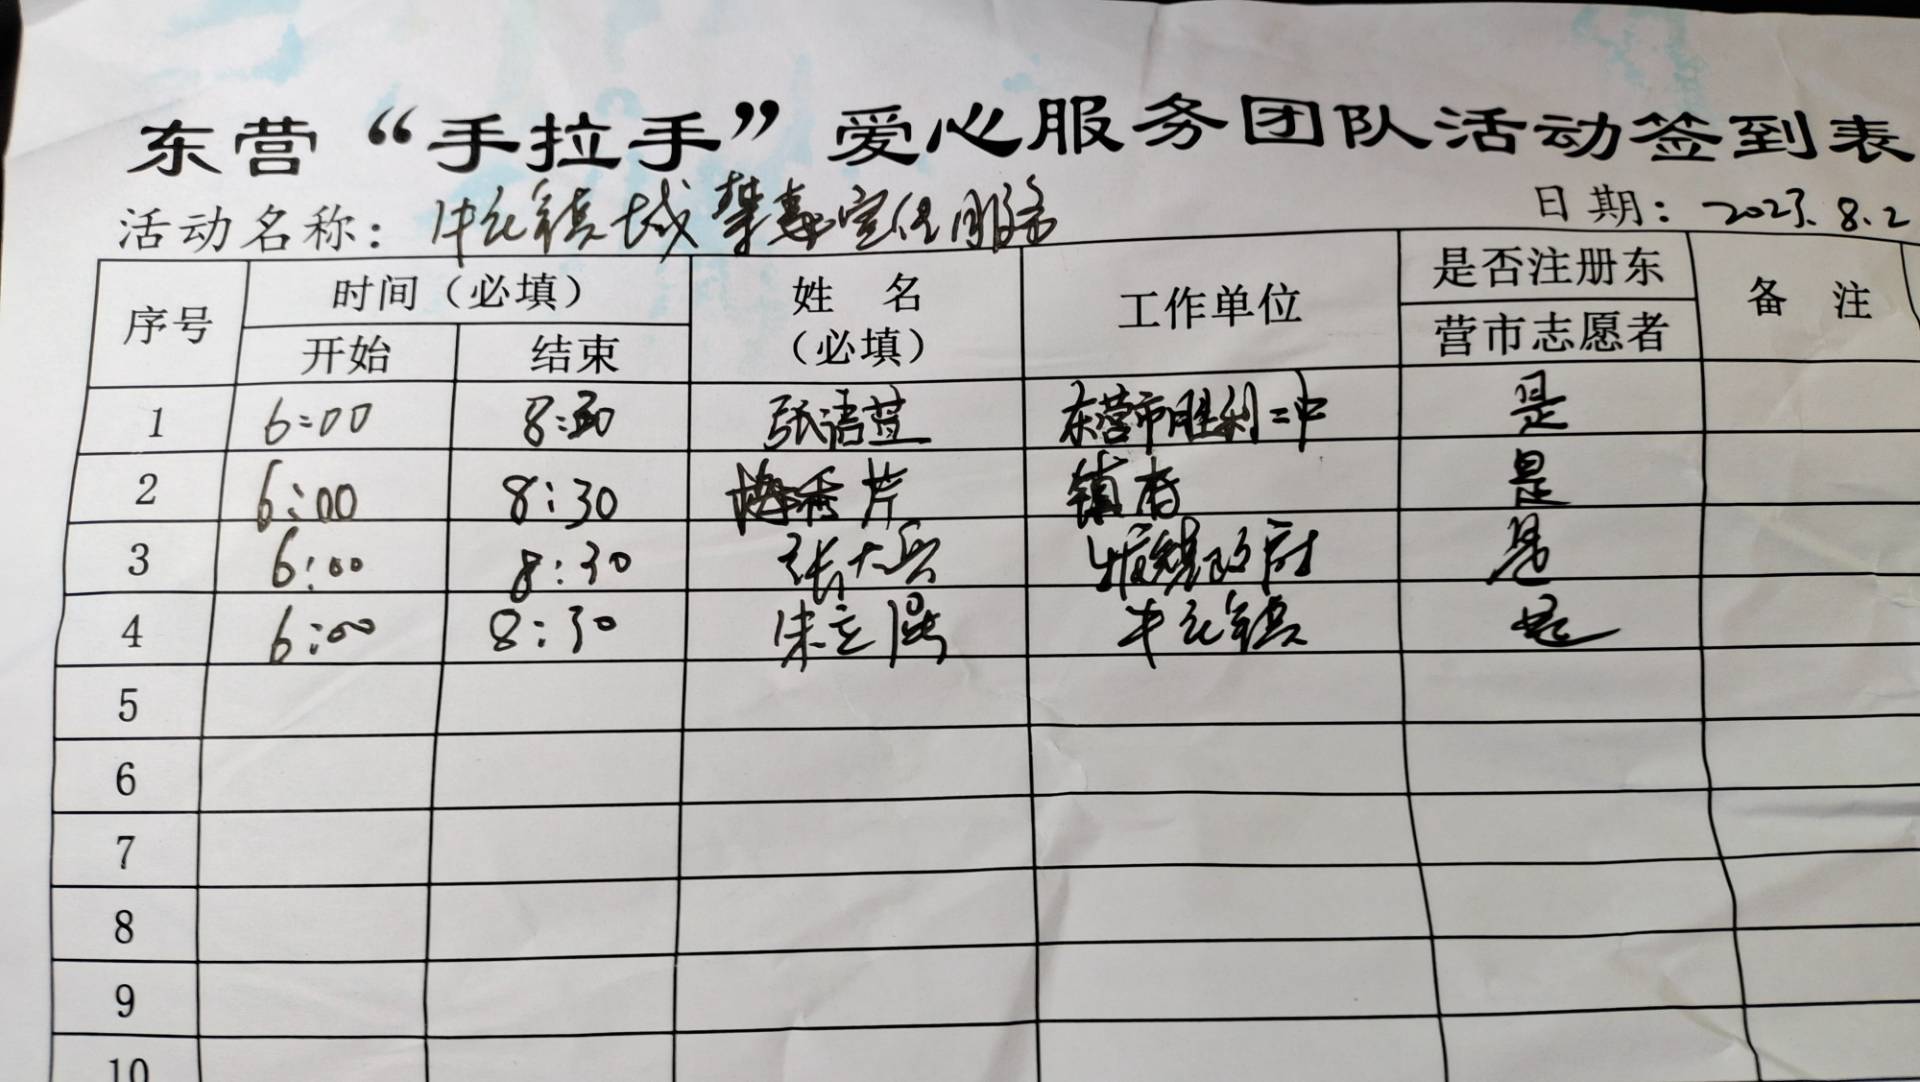 东营“手拉手”爱心服务团队活动签到表
活动名称：牛庄镇城禁毒宣传服务 日期：2023.8.2
序号 时间（必填） 姓 名（必填） 工作单位 是否注册东营市志愿者 备 注
开始 结束
1 6:00 8:30 张语萱 东营市胜利二中 是
2 6:00 8:30 芹 镇府 是
3 6:00 8:30 张大兵 牛庄镇政府 是
4 6:00 8:30 宋立 牛庄镇 是
5
6
7
8
9
10